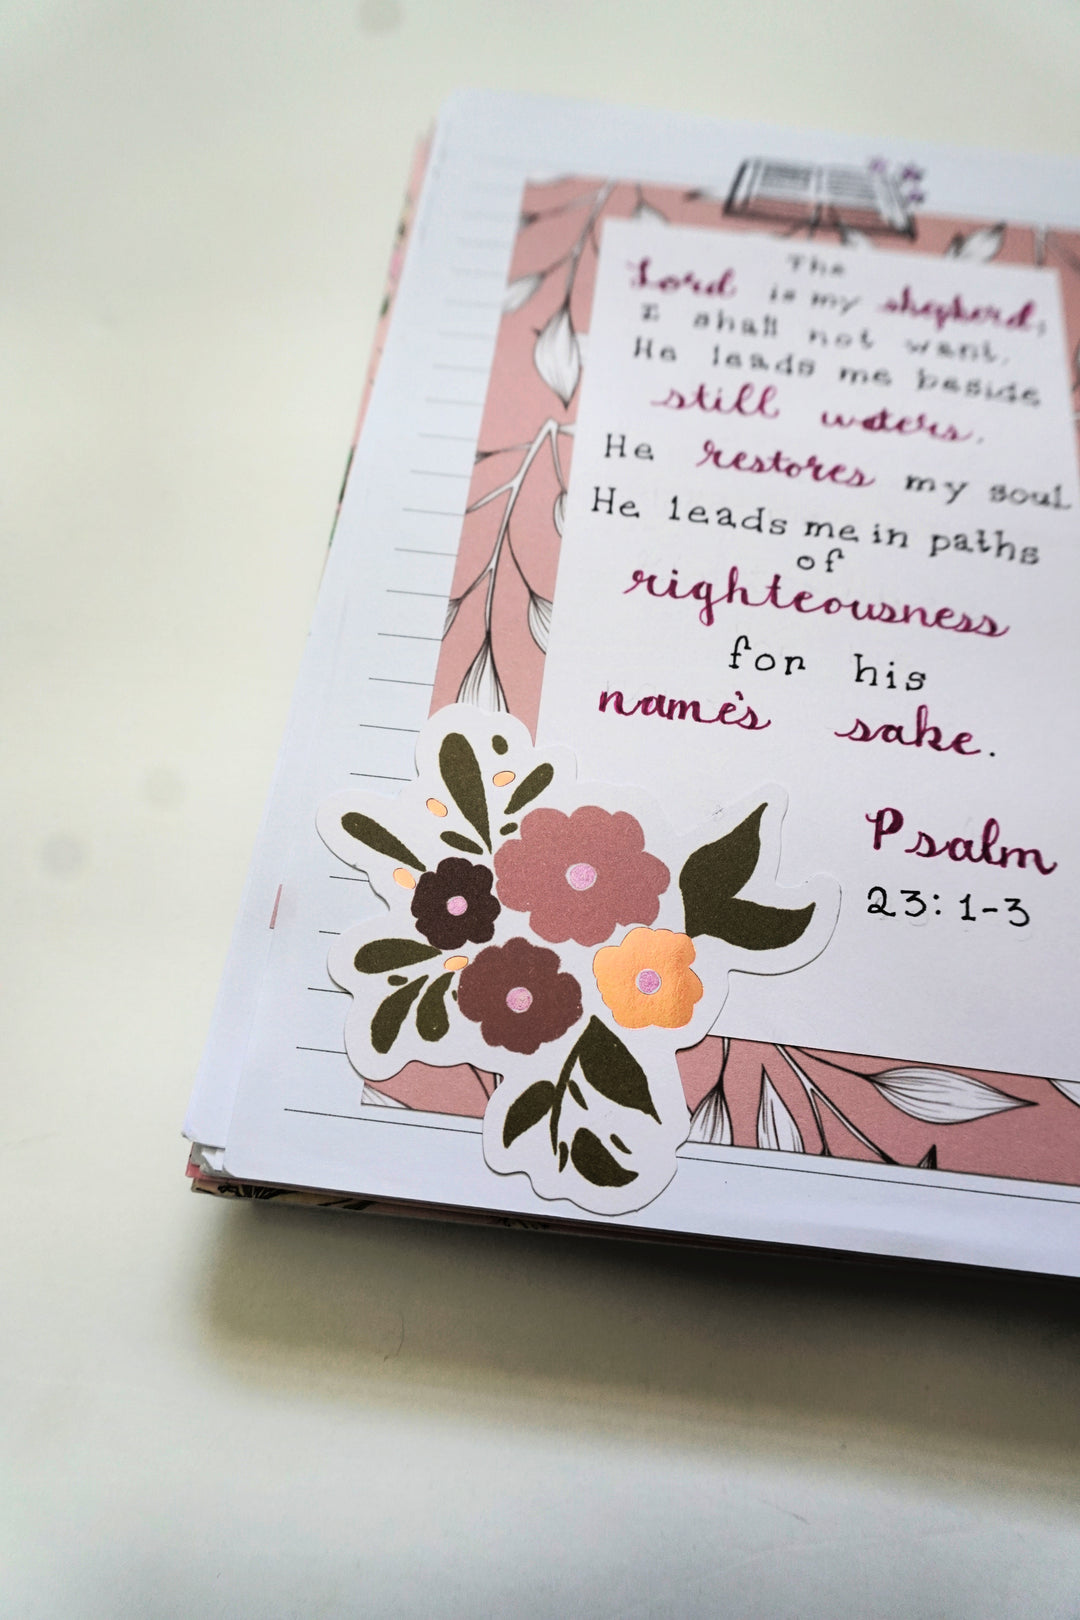 The
Lord is my shepherd;
I shall not want.
He leads me beside
still waters.
He restores my soul
He leads me in paths
of
righteousness
for his
name's sake.
Psalm
23: 1-3